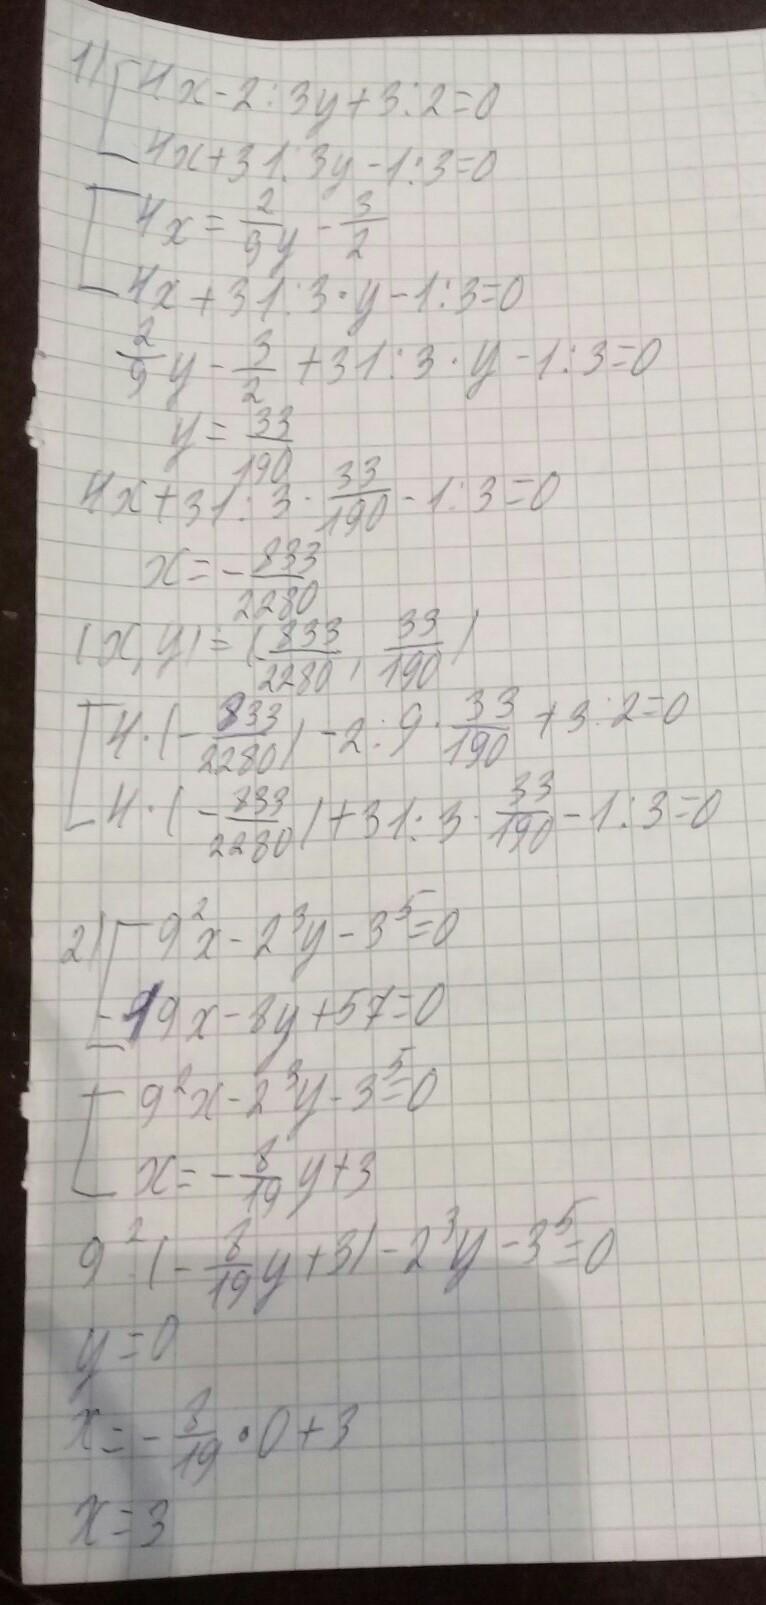 1) 4x-2:3y+3:2=0
4x+31:3y-1:3=0
4x=2/9y-3/2
4x+31:3·y-1:3=0
2/9y-3/2+31:3·y-1:3=0
y=33/190
4x+31:3·33/190-1:3=0
x=-833/2280
(x,y)=(833/2280, 33/190)
4·(-833/2280)-2:9·33/190+3:2=0
4·(-833/2280)+31:3·33/190-1:3=0
2) 9²x-2³y-3⁵=0
-19x-8y+57=0
9²x-2³y-3⁵=0
x=-8/19y+3
9²·(-8/19y+3)-2³y-3⁵=0
y=0
x=-8/19·0+3
x=3